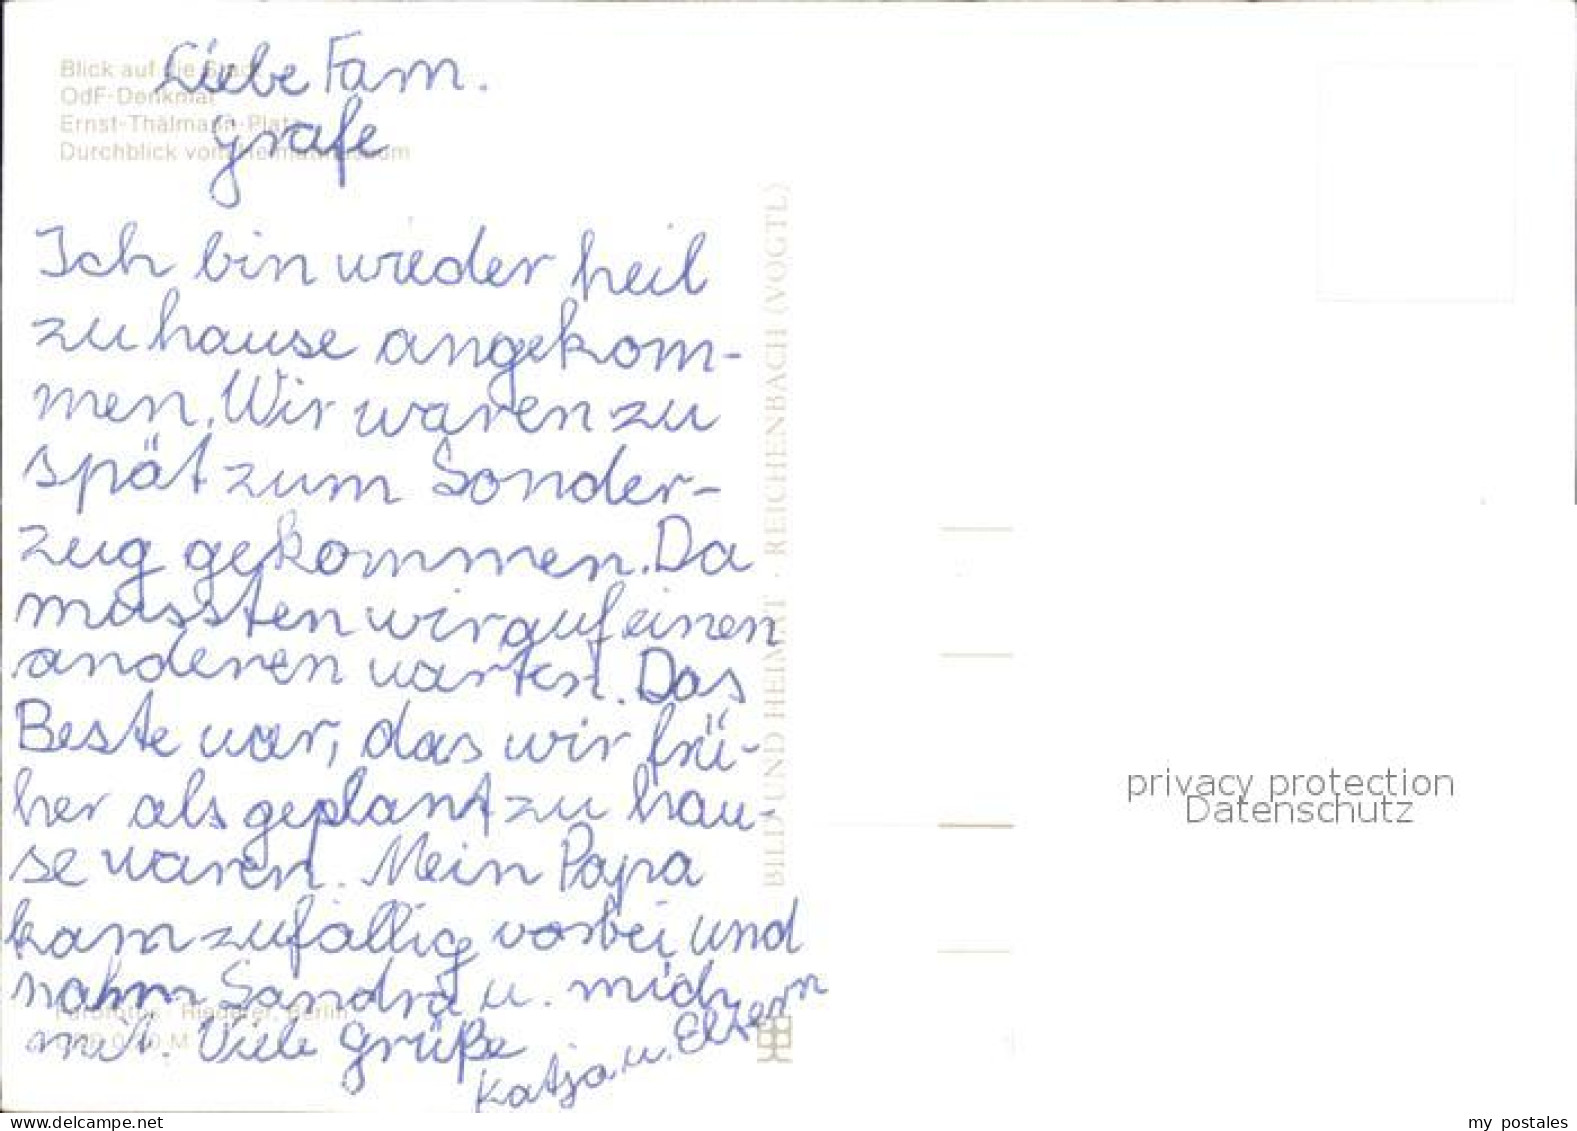 Blick auf die Stadt
OdF-Denkmal
Ernst-Thälmann-Platz
Durchblick vom Heimatmuseum
Liebe Fam.
Grafe
Ich bin wieder heil
zuhause angekom-
men. Wir waren zu
spät zum Sonder-
zug gekommen. Da
mussten wir auf einen
anderen warten. Das
Beste war, das wir frü-
her als geplant zu hau-
se waren. Mein Papa
kam zufällig vorbei und
nahm Sandra u. mich
mit. Viele Grüße
Katja u. Elzern
BILD UND HEIMAT · REICHENBACH (VOGTL)
Riederer, Berlin
privacy protection
Datenschutz
www.delcampe.net
my postales